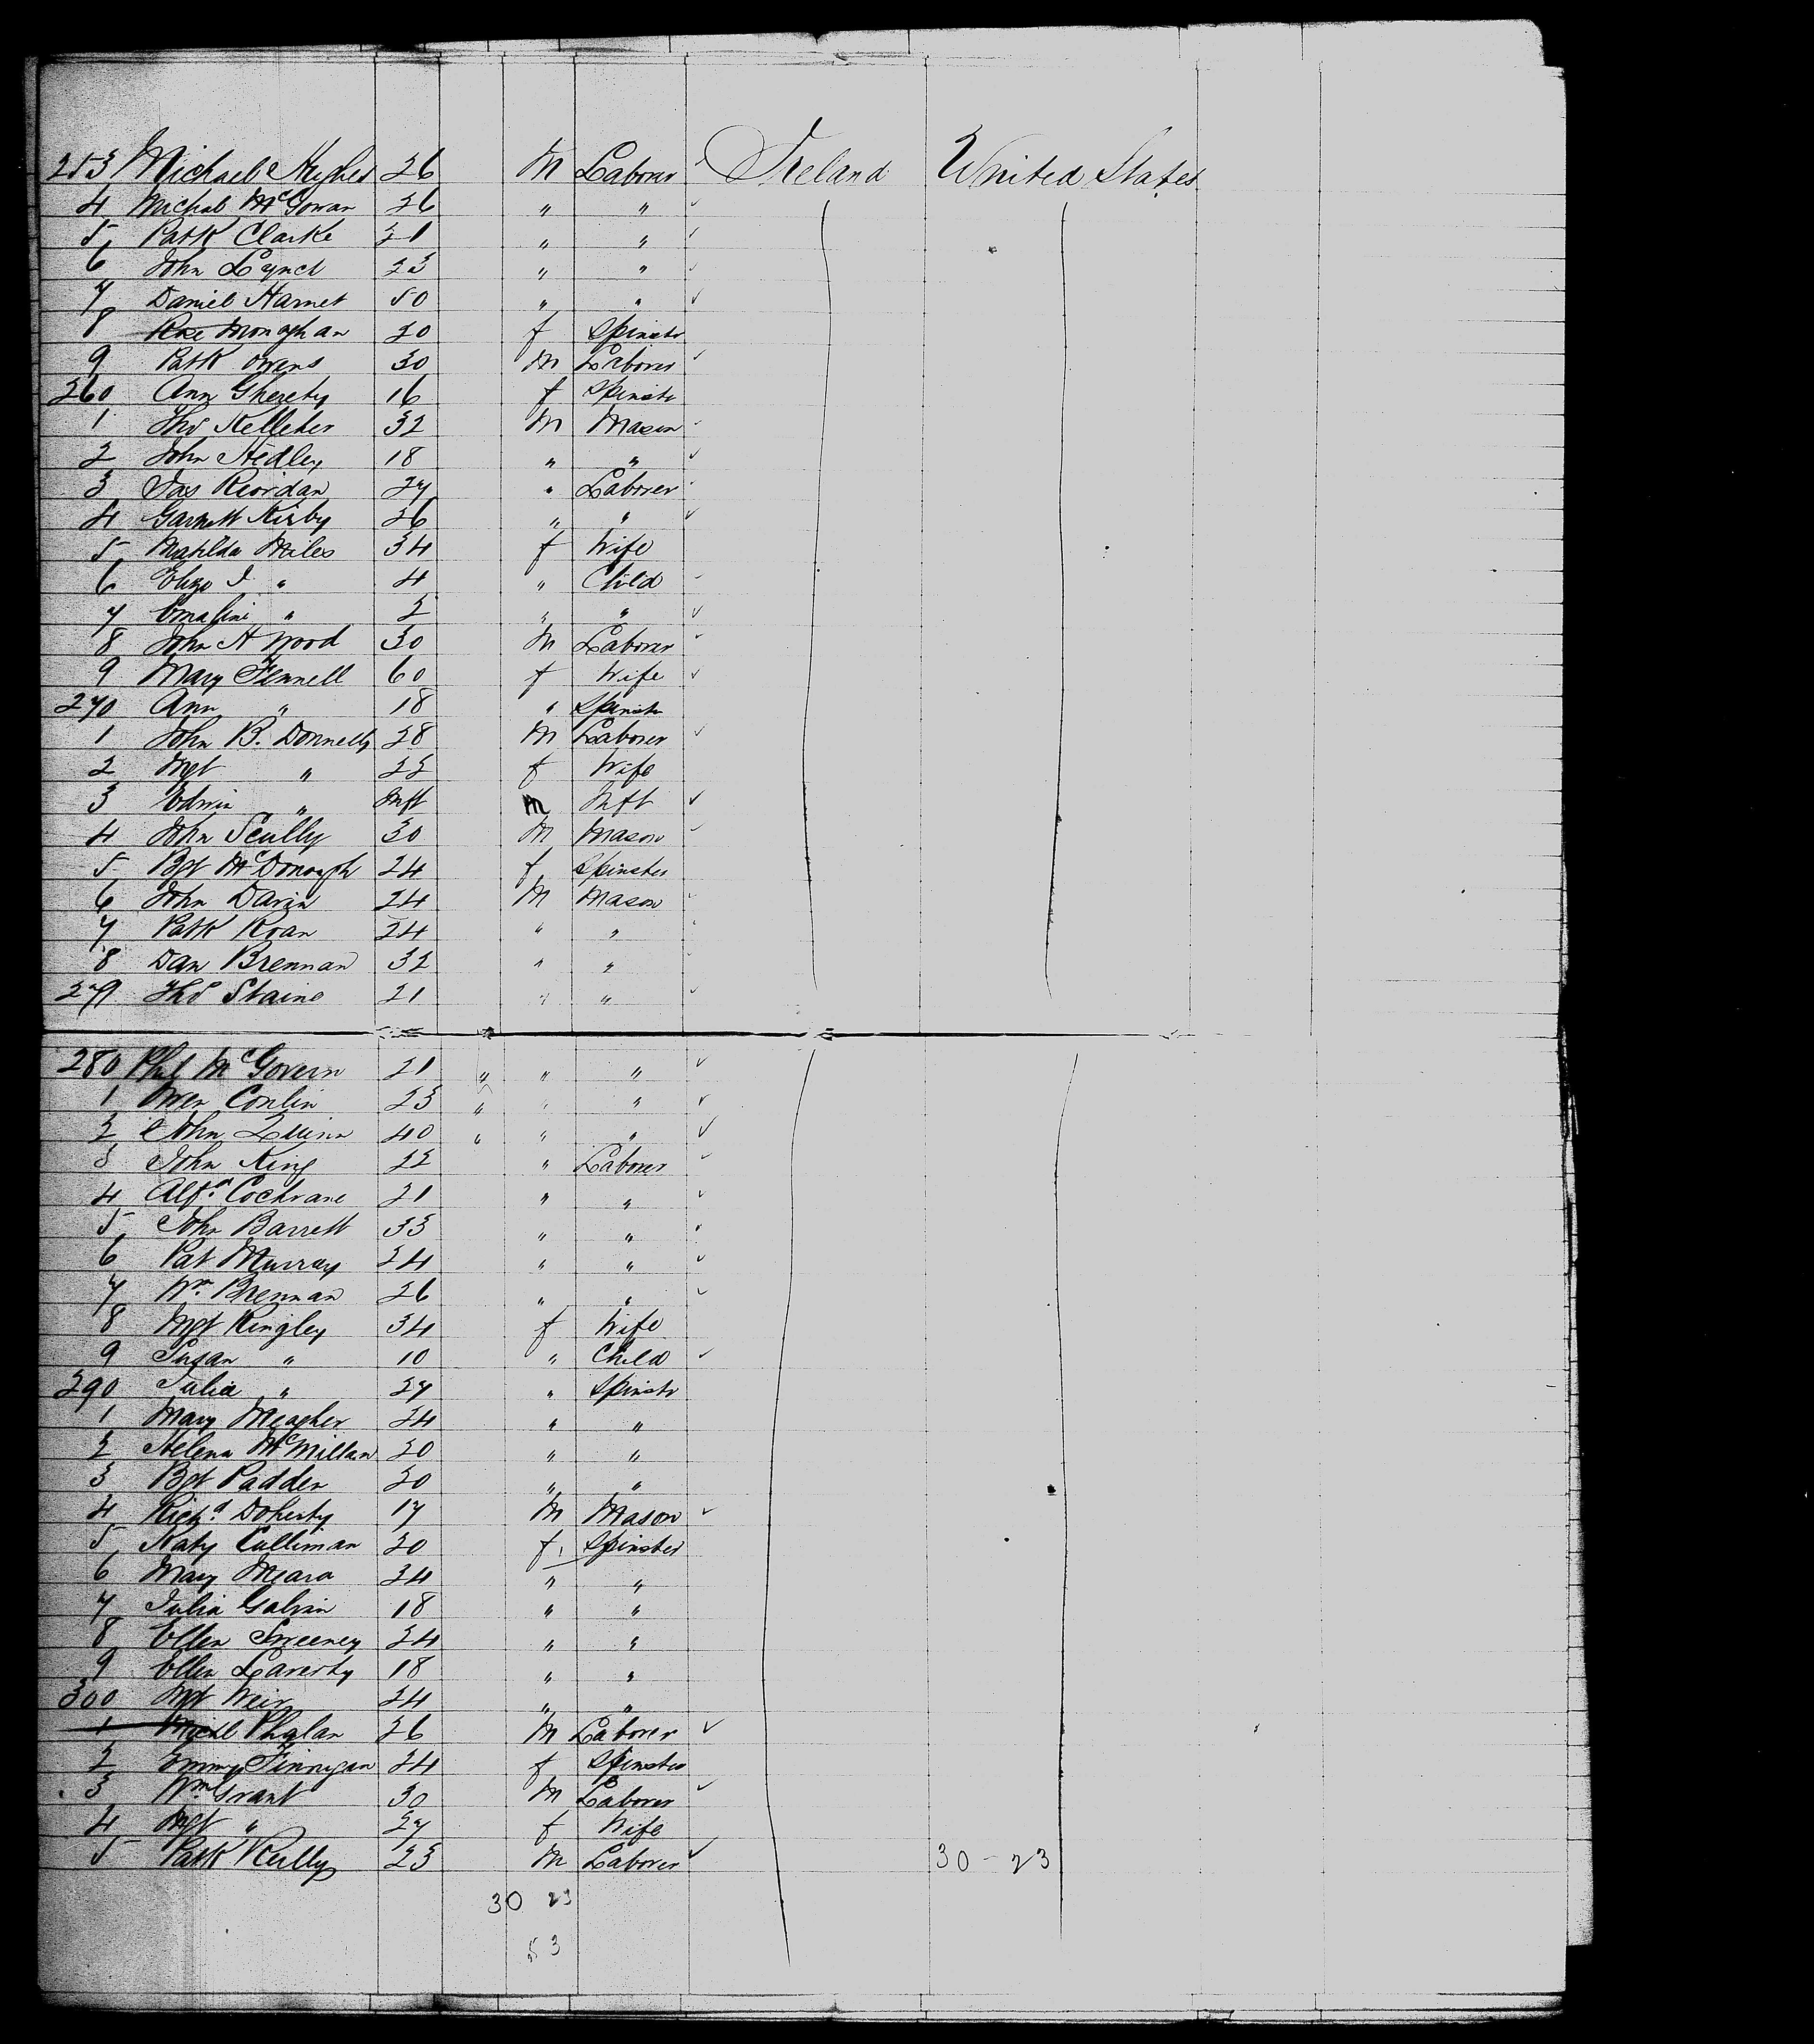 253 Michael Hughes 26 M Laborer Ireland United States
4 Michal McGowan 26 " "
5 Patk Clarke 21 " "
6 John Lynch 23 " "
7 Daniel Harnet 50 " "
8 Rose Monaghan 20 f Spinstr
9 Patk Owens 30 M Laborer
260 Ann Gherety 16 f Spinstr
1 Thos Kelleher 32 M Mason
2 John Hedley 18 " "
3 Jas Reordan 27 " Laborer
4 Garrett Kirby 26 " "
5 Matilda Miles 34 f Wife
6 Eliza J " 4 " Child
7 Emaline " 2 " "
8 John H Wood 30 M Laborer
9 Mary Fennell 60 f Wife
270 Ann " 18 " Spinstr
1 John B. Donnelly 28 M Laborer
2 Mgt " 22 f Wife
3 Edwin " Inft m Inft
4 John Scully 30 M Mason
5 Bgt McDonough 24 f Spinster
6 John Darin 24 M Mason
7 Patk Roan 24 " "
8 Dan Brennan 32 " "
279 Thos Staine 21 " "
280 Phil McGovern 21 " " "
1 Owen Conlin 23 " " "
2 John Quinn 40 " " "
3 John King 22 " Laborer
4 Alfd Cochrane 21 " "
5 John Barrett 33 " "
6 Pat Murray 24 " "
7 Wm Brennan 26 " "
8 Mgt Ringley 34 f Wife
9 Susan " 10 " Child
290 Julia " 27 " Spinstr
1 Mary Meagher 24 " "
2 Helena McMillan 20 " "
3 Bgt Padden 20 " "
4 Richd Doherty 17 M Mason
5 Katy Culliman 20 f Spinster
6 Mary Meara 24 " "
7 Julia Galvin 18 " "
8 Ellen Sweeney 24 " "
9 Ellen Laverty 18 " "
300 Mgt Weir 24 " "
1 Michl Phalan 26 M Laborer
2 Emmy Finnigan 24 f Spinster
3 Wm Grant 30 M Laborer
4 Mgt " 27 f Wife
5 Patk Reilly 23 M Laborer 30 - 23
30 23
53